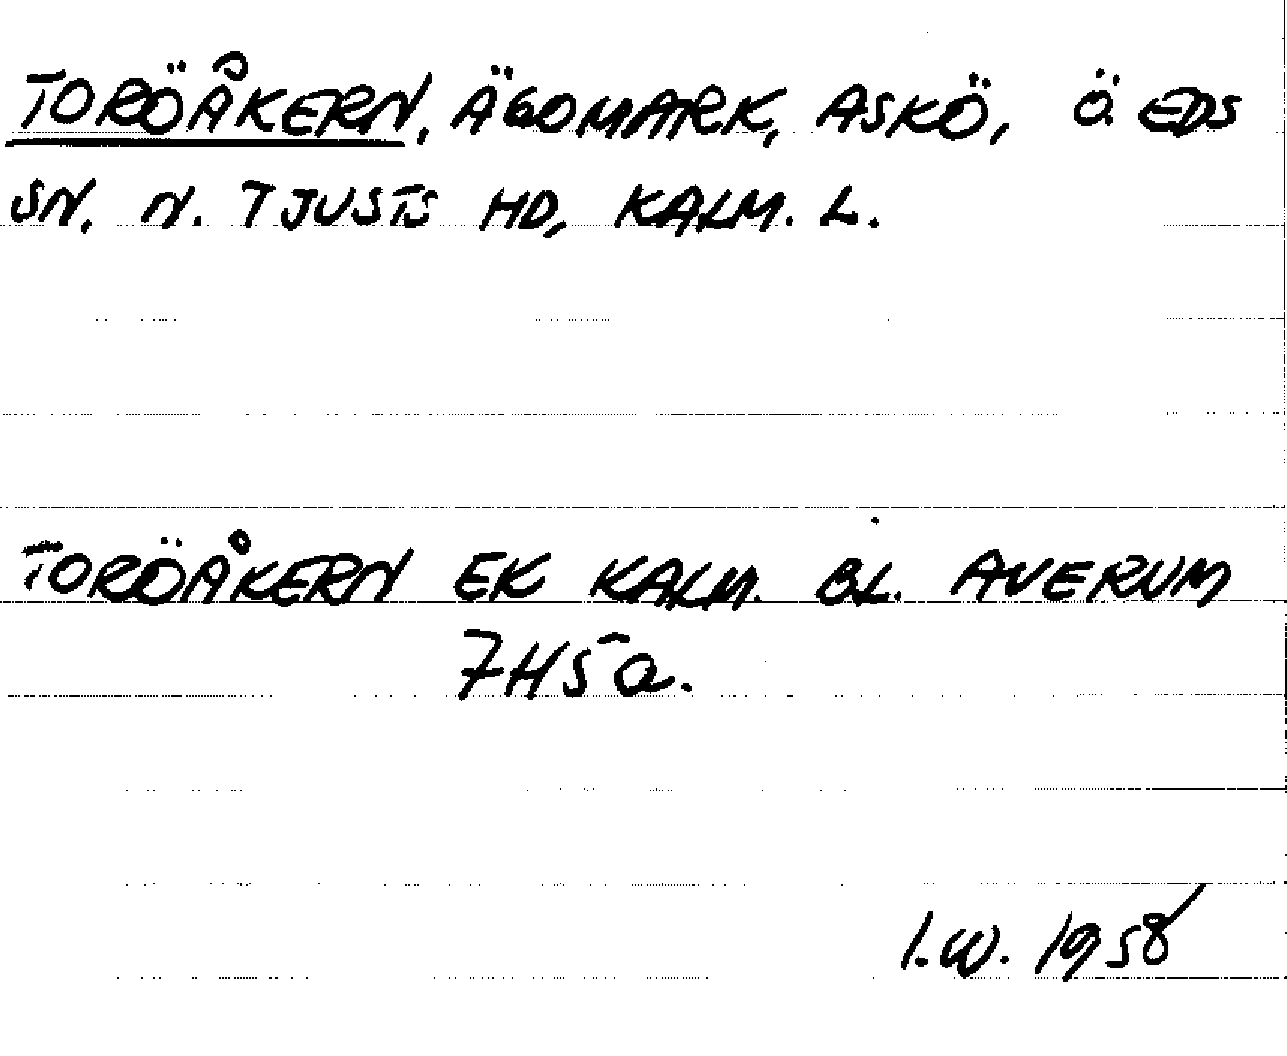 TORÖÅKERN, ÄGOMARK, ASKÖ, Ö. EDS
SN. N. TJUSTS HD, KALM. L.
TORÖÅKERN EK KALM. BL. AVERUM
7H5a.
I.W. 1958